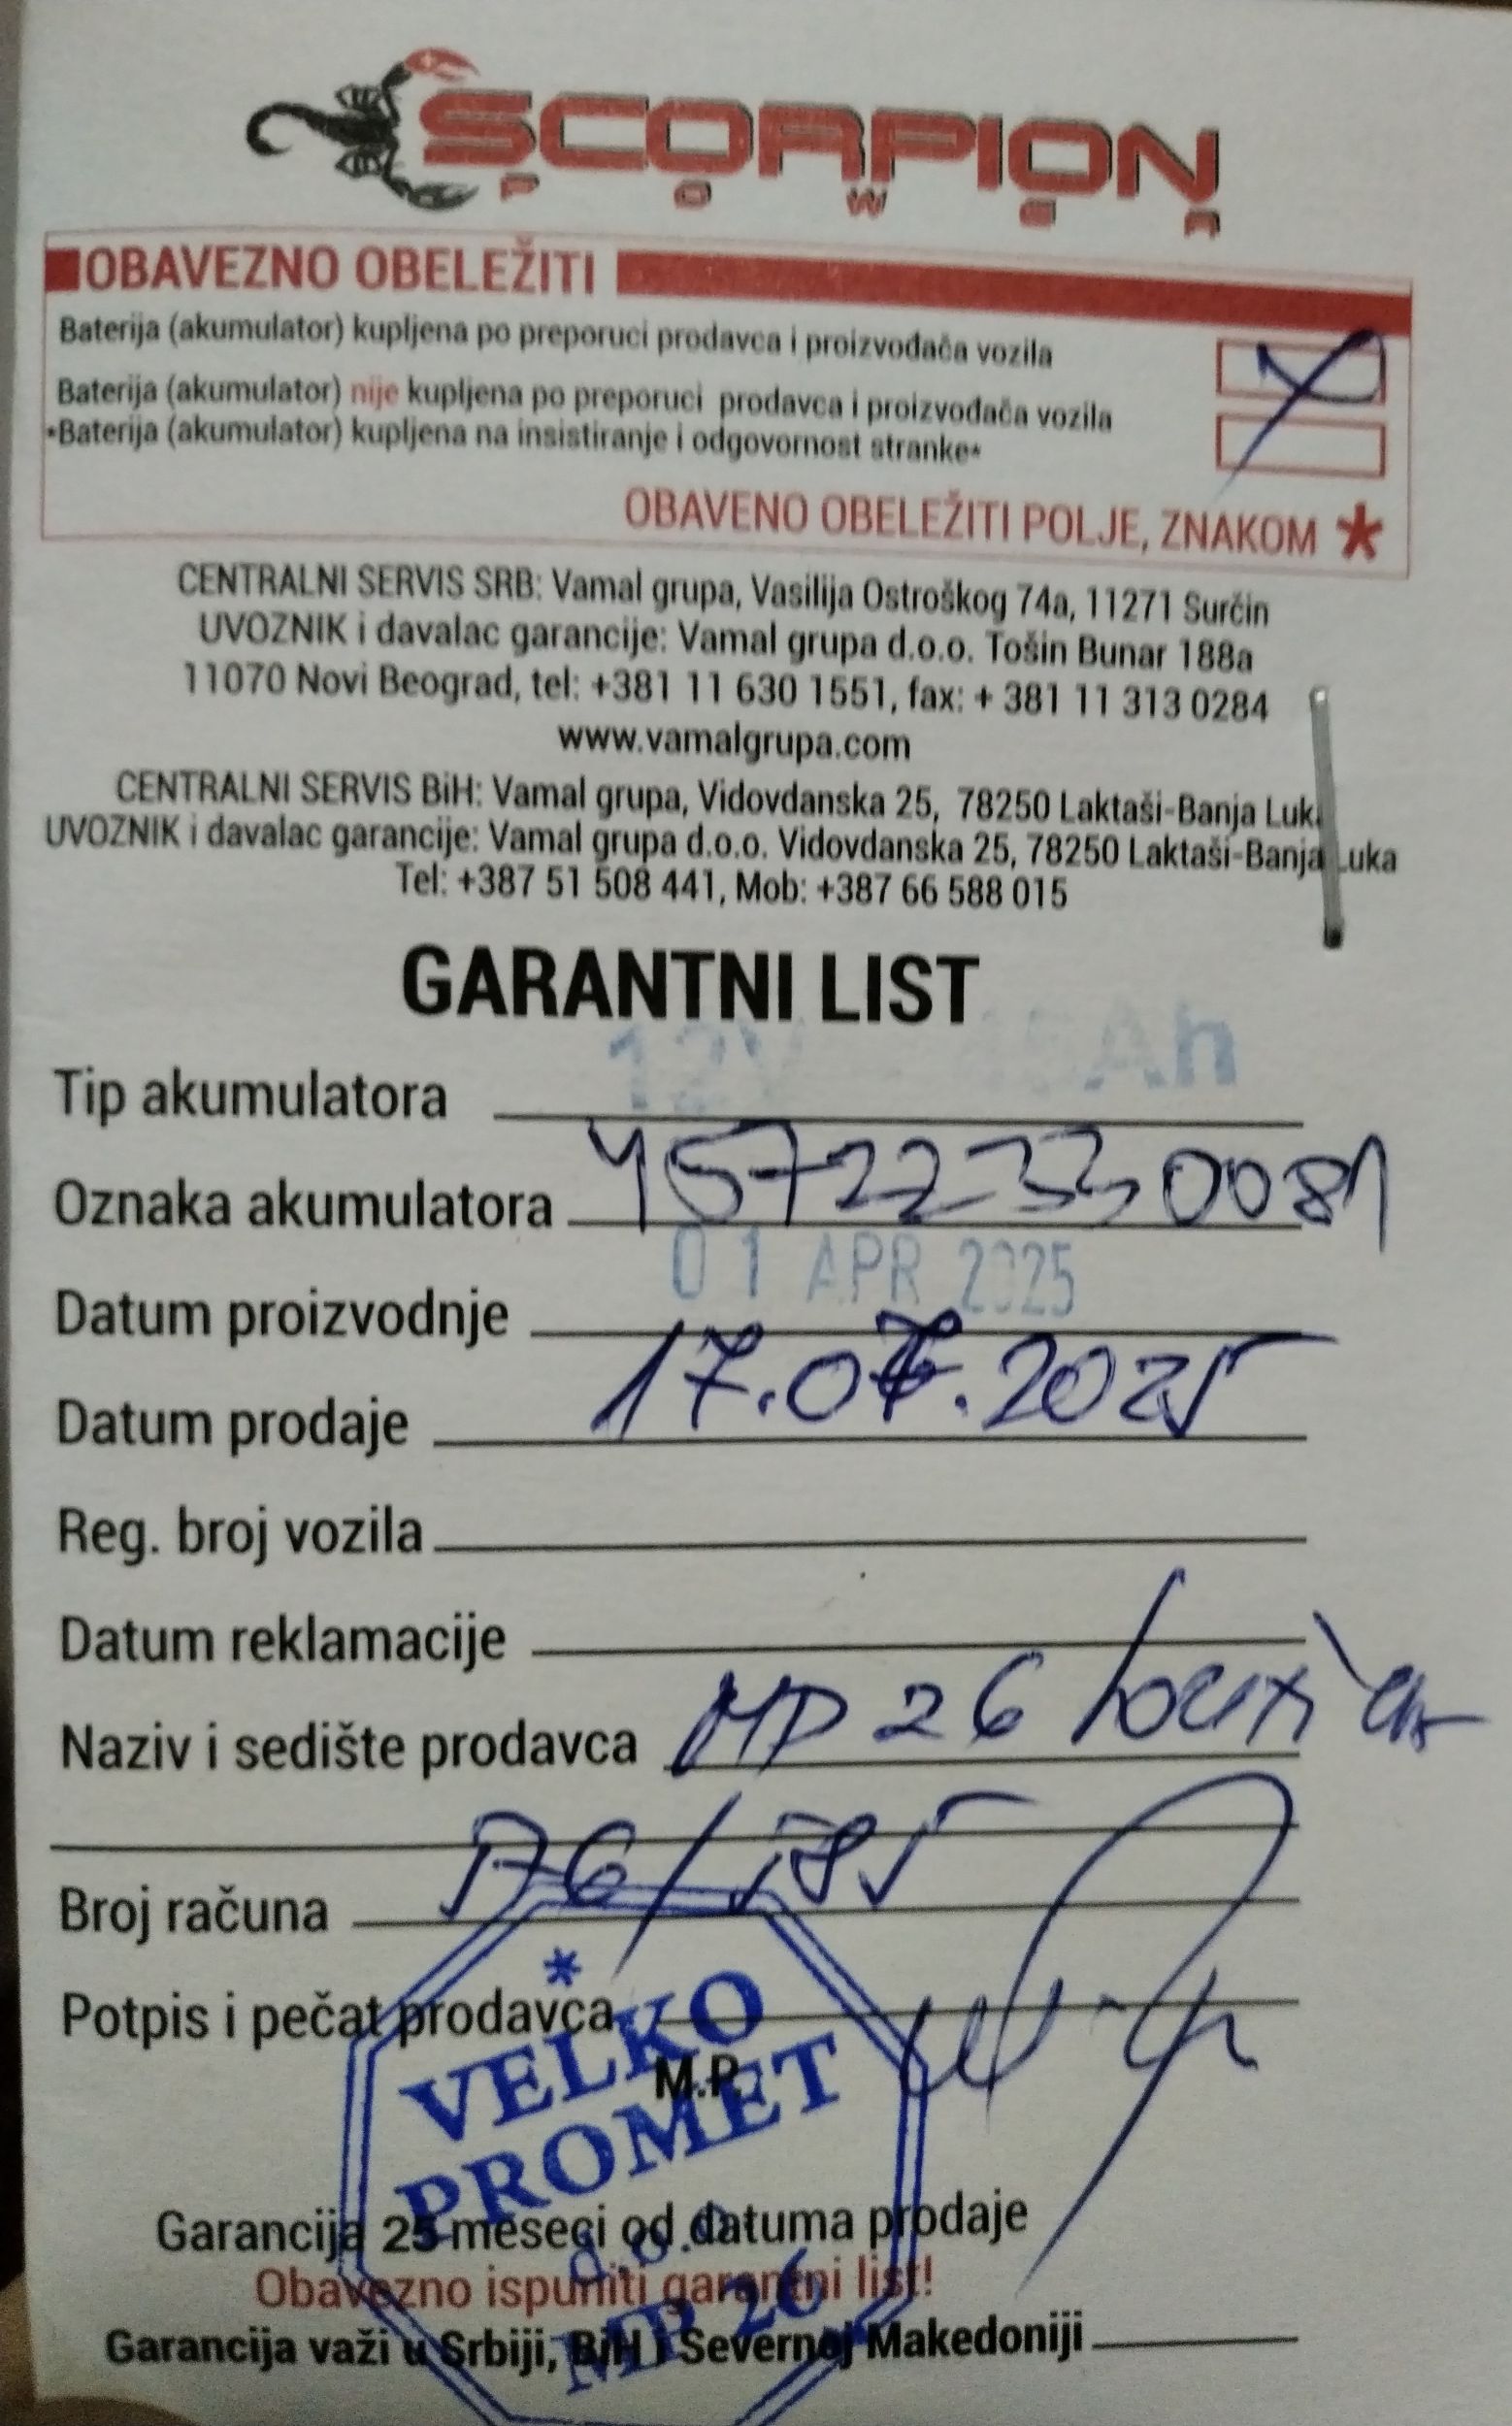 SCORPION
POWER
OBAVEZNO OBELEŽITI
Baterija (akumulator) kupljena po preporuci prodavca i proizvođača vozila
Baterija (akumulator) nije kupljena po preporuci prodavca i proizvođača vozila
*Baterija (akumulator) kupljena na insistiranje i odgovornost stranke*
OBAVENO OBELEŽITI POLJE, ZNAKOM *
CENTRALNI SERVIS SRB: Vamal grupa, Vasilija Ostroškog 74a, 11271 Surčin
UVOZNIK i davalac garancije: Vamal grupa d.o.o. Tošin Bunar 188a
11070 Novi Beograd, tel: +381 11 630 1551, fax: + 381 11 313 0284
www.vamalgrupa.com
CENTRALNI SERVIS BiH: Vamal grupa, Vidovdanska 25, 78250 Laktaši-Banja Luka
UVOZNIK i davalac garancije: Vamal grupa d.o.o. Vidovdanska 25, 78250 Laktaši-Banja Luka
Tel: +387 51 508 441, Mob: +387 66 588 015
GARANTNI LIST
Tip akumulatora 12V
Oznaka akumulatora 45722330081
Datum proizvodnje 01 APR 2025
Datum prodaje 17.07.2025
Reg. broj vozila
Datum reklamacije
Naziv i sedište prodavca MP 26
Broj računa
Potpis i pečat prodavca
M.P.
* VELKO
PROMET
d.o.o.
MP 26
Garancija 25 meseci od datuma prodaje
Obavezno ispuniti garantni list!
Garancija važi u Srbiji, BiH i Severnoj Makedoniji